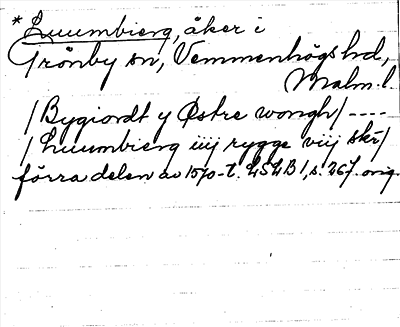 * Luumbierg, åker i
Grönby sn, Vemmenhögs hd,
Malm. l.
/Bygiordt y Østre wongh/ ----
/Luumbierg iiij rygge viij skr/
förra delen av 1570-t. LSLB 1, s. 267. orig.